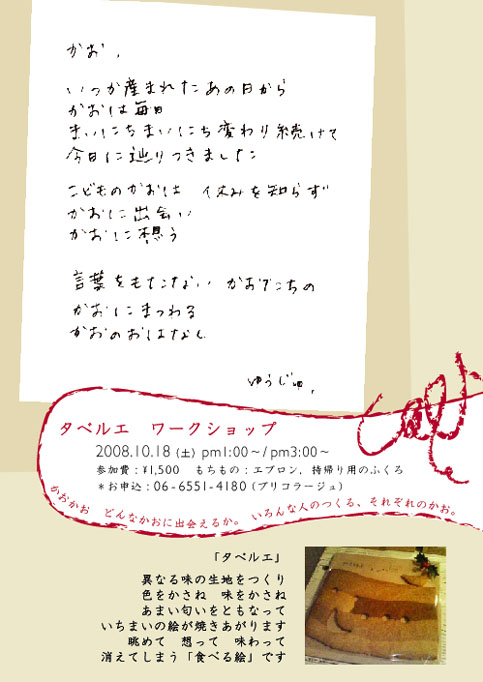 かお、
いつか産まれたあの日から
かおは毎日
まいにちまいにち変わり続けて
今日に辿りつきました
こどものかおは　休みを知らず
かおに出会い
かおに想う
言葉をもたない　かおたちの
かおにまつわる
かおのおはなし
ゆうじゅ、
タベルエ　ワークショップ
2008.10.18（土）pm1:00～/pm3:00～
参加費：¥1,500　もちもの：エプロン、持帰り用のふくろ
＊お申込：06-6551-4180（ブリコラージュ）
かおかお　どんなかおに出会えるか。　いろんな人のつくる、それぞれのかお。
「タベルエ」
異なる味の生地をつくり
色をかさね　味をかさね
あまい匂いをともなって
いちまいの絵が焼きあがります
眺めて　想って　味わって
消えてしまう「食べる絵」です